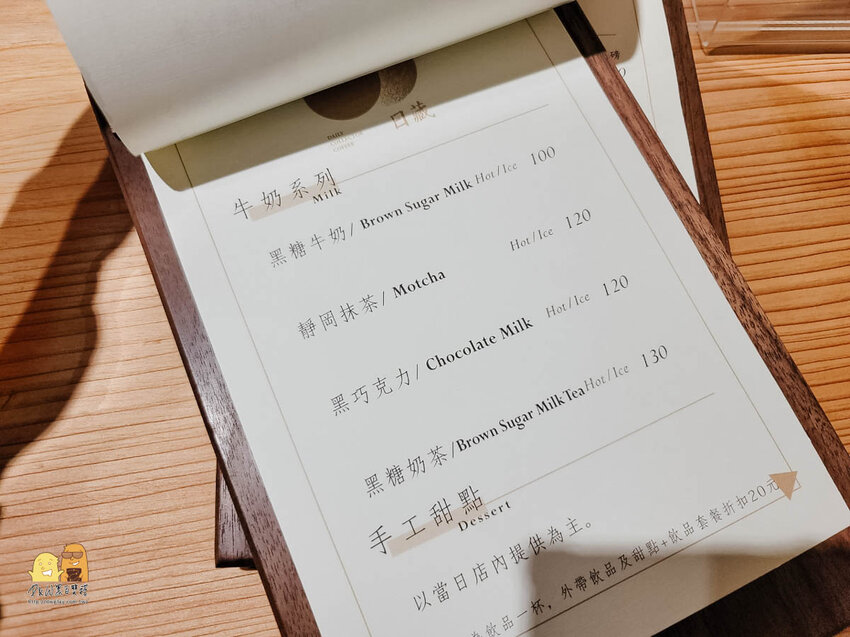 日藏
DAILY
COLLECTION
COFFEE
牛奶系列
Milk
黑糖牛奶/ Brown Sugar Milk Hot/Ice 100
靜岡抹茶/ Motcha Hot/Ice 120
黑巧克力/ Chocolate Milk Hot/Ice 120
黑糖奶茶/Brown Sugar Milk Tea Hot/Ice 130
手工甜點
Dessert
以當日店內提供為主。
為飲品一杯，外帶飲品及甜點+飲品套餐折扣20元
磅